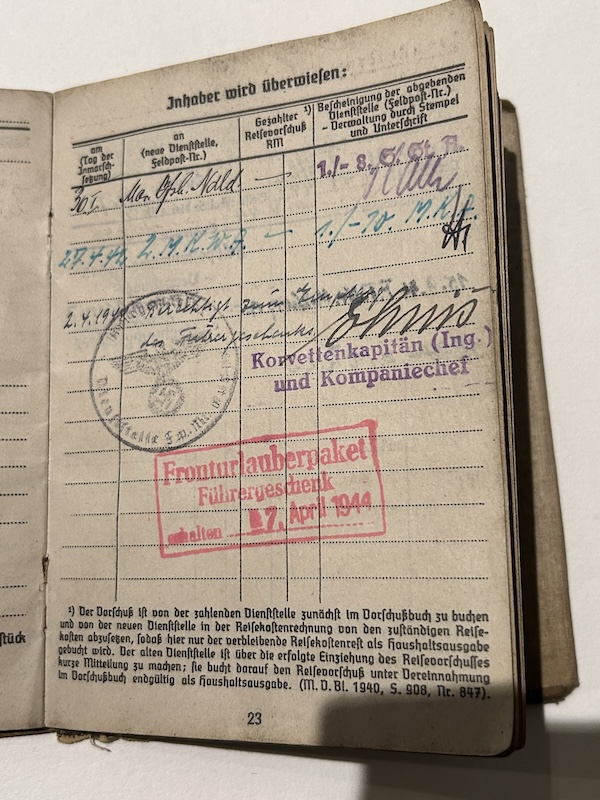 Inhaber wird überwiesen:
am
(Tag der
Inmarsch-
setzung)
an
(neue Dienststelle,
Feldpost-Nr.)
Gezahlter ¹)
Reisevorschuß
RM
Bescheinigung der abgebenden
Dienststelle (Feldpost-Nr.)
- Verwaltung durch Stempel
und Unterschrift
30.I. Mar. —
1./- 8.
27.4.44 2. M.K.W.A. — 1./-10. M.K.A.
2.4.194 Berechtigt zum Empfang
des Führergeschenks
Dienststelle
Korvettenkapitän (Ing.)
und Kompaniechef
Fronturlauberpaket
Führergeschenk
erhalten 17. April 1944
¹) Der Vorschuß ist von der zahlenden Dienststelle zunächst im Vorschußbuch zu buchen
und von der neuen Dienststelle in der Reisekostenrechnung von den zuständigen Reise-
kosten abzusetzen, sodaß hier nur der verbleibende Reisekostenrest als Haushaltsausgabe
gebucht wird. Der alten Dienststelle ist über die erfolgte Einziehung des Reisevorschusses
kurze Mitteilung zu machen; sie bucht darauf den Reisevorschuß unter Vereinnahmung
im Vorschußbuch endgültig als Haushaltsausgabe. (M. D. Bl. 1940, S. 908, Nr. 847).
23
stück